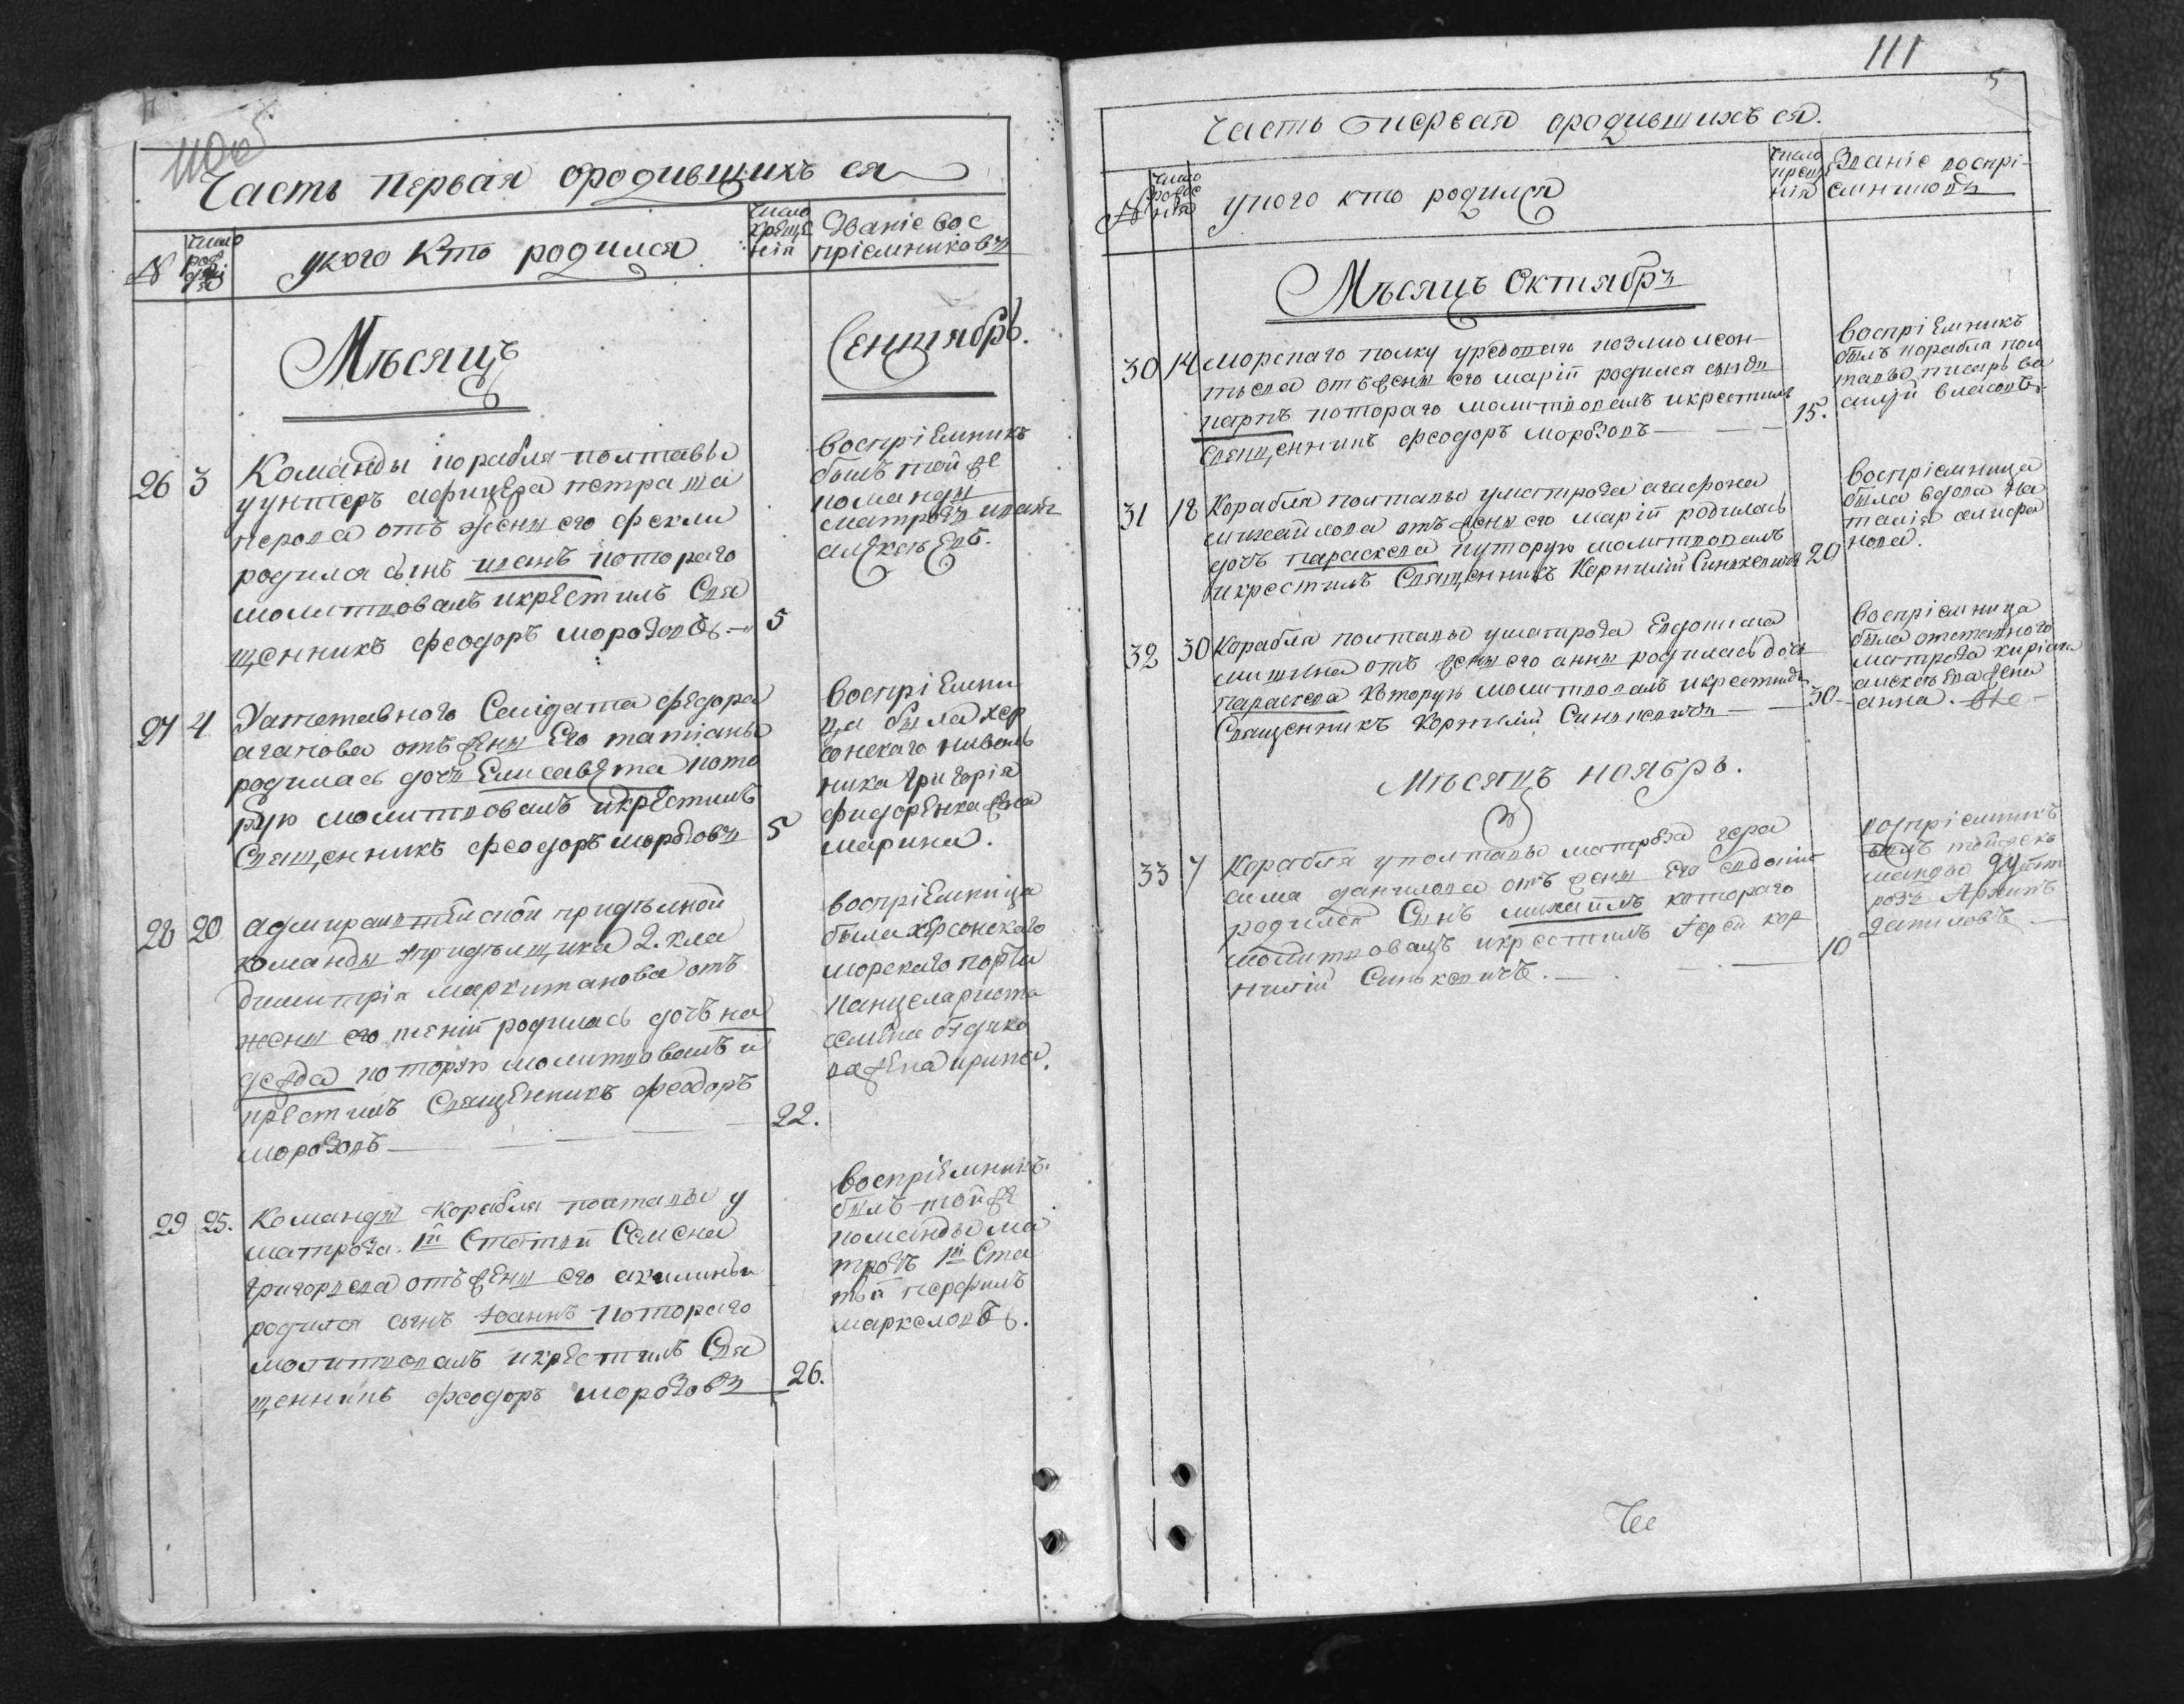 110об
Часть первая ородившихъ ся
№
число рождѣнія
укого Кто родился
число Крещенія
Званіе вос
пріемниковъ
Мѣсяцъ
Сентябрь.
26 3
Команды корабля полтавы
уунтеръ афицера петра ша
перова отъ жены его феклы
родился сынъ иванъ котораго
молитвовалъ икрестилъ Свя
щенникъ феодоръ морозовъ. 5
воспріемникъ
былъ той же
команды
матрозъ
алексеевъ.
27 4
Уатставного Салдата фѣдора
агапова отъ жены Его татіаны
родилась дочь Елисавета кото
рую молитвовалъ икрестилъ
Священникъ феодоръ морозовъ 5
воспріемни
ца была хер
сонскаго
ника григорія
фидоренка жена
марина.
28 20
адмиралтейской придѣлной
команды упридѣлщика 2. кла
димитрія маркитанова отъ
жены его ксеніи родилась дочь на
дежда которую молитвовалъ и
крестилъ Священникъ феодоръ
морозовъ 22.
воспріемница
была херсонскаго
морскаго порта
канцеляриста
семена
ва жена ирина.
29 25.
Команды корабля полтавы у
матроза 1й Статьи Семена
григорьева отъ жены его акилины
родился сынъ Іоаннъ котораго
молитвовалъ икрестилъ Свя
щенникъ феодоръ морозовъ 26.
воспріемникъ
былъ той же
команды ма
трозъ 1й Ста
тьи перфилъ
маркеловъ.
111
5
Часть первая ородившихъ ся.
№
число рожденія
укого кто родился
число крещенія
Званіе воспрі-
емниковъ
Мѣсяцъ Октябрь
30 14
морскаго полку урядоваго козмы леон-
тьева отъ жены его маріи родился сынъ
карпъ котораго молитвовалъ икрестилъ
Священникъ феодоръ морозовъ 15.
воспріемникъ
былъ корабля пол
тавы писарь ва
силій власовъ.
31 18
Корабля полтавы уматроза агафона
михайлова отъ жены его маріи родилась
дочь параскева куторую молитвовалъ
икрестилъ Священникъ Корнилій Синькевичъ 20
воспріемница
была вдова на
талія
нова.
32 30
Корабля полтавы уматроза Евдокима
мишина отъ жены его анны родилась дочь
параскева Которую молитвовалъ икрестилъ
Священникъ Корнилій Синькевичъ 30
воспріемница
была отставного
матроза киріака
алексѣева жена
анна.
Мѣсяцъ ноябрь.
33 7
Корабля уполтавы матроза гера
сима данилова отъ жены Его евдокіи
родился Сынъ михаилъ котораго
молитвовалъ икрестилъ Іерей кор
нилій Синькевичъ. 10
воспріемникъ
былъ тойжеко
манды
розъ Архипъ
даниловъ